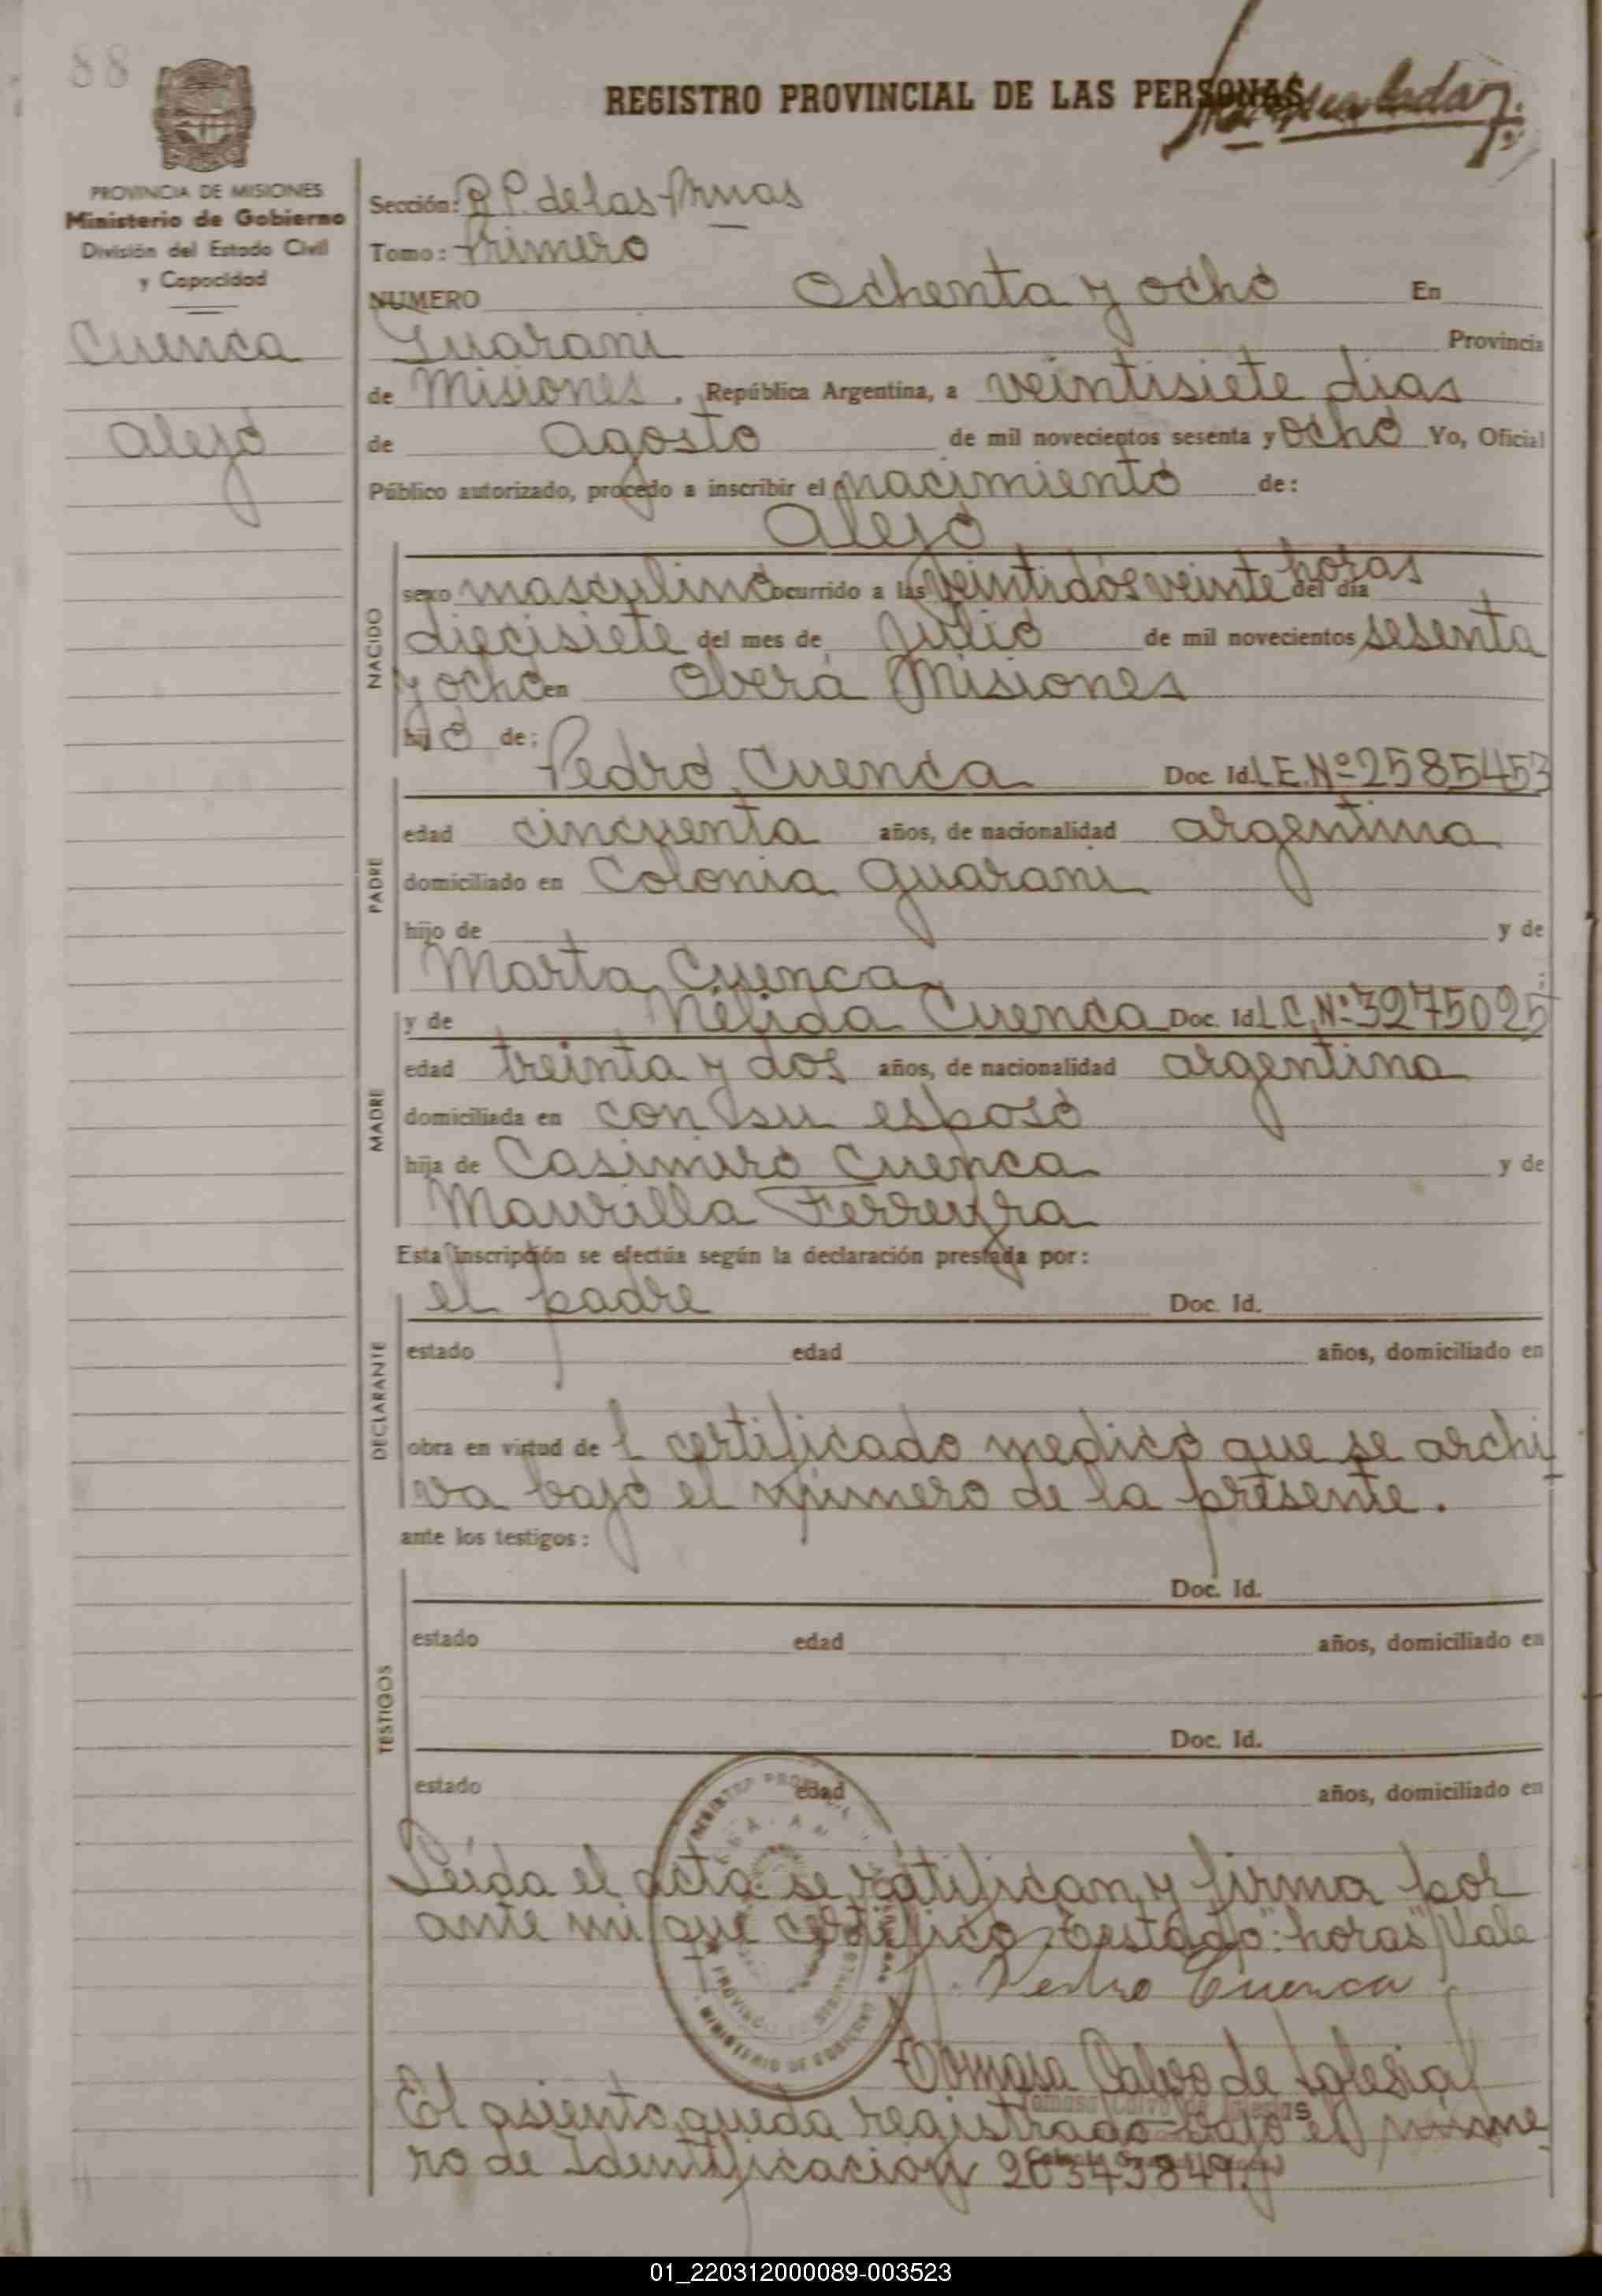 88
REGISTRO PROVINCIAL DE LAS PERSONAS
PROVINCIA DE MISIONES
Ministerio de Gobierno
División del Estado Civil
y Capacidad
Cuenca
Alejo
Sección: B P. de las Armas
Tomo: Primero
NUMERO Ochenta y ocho En
Guarani Provincia
de Misiones. República Argentina, a veintisiete dias
de Agosto de mil novecientos sesenta y ocho Yo, Oficial
Público autorizado, procedo a inscribir el nacimiento de:
Alejo
NACIDO
sexo masculino ocurrido a las veintidós veinte horas del dia
diecisiete del mes de Julio de mil novecientos sesenta
y ocho en Oberá Misiones
hijo de:
PADRE
Pedro Cuenca Doc. Id. L.E. Nº 2585453
edad cincuenta años, de nacionalidad argentina
domiciliado en Colonia Guarani
hijo de y de
Marta Cuenca
MADRE
y de Nélida Cuenca Doc. Id L.C. Nº 3275025
edad treinta y dos años, de nacionalidad argentina
domiciliada en con su esposo
hija de Casimiro Cuenca y de
Maurilla Ferreyra
Esta inscripción se efectúa según la declaración prestada por:
DECLARANTE
el padre Doc. Id.
estado edad años, domiciliado en
obra en virtud de l certificado medico que se archi
va bajo el número de la presente.
ante los testigos:
TESTIGOS
Doc. Id.
estado edad años, domiciliado en
Doc. Id.
estado edad años, domiciliado en
Leída el acta se ratifican y firma por
ante mi que certifico. Testado: "horas" Vale
Pedro Cuenca
MINISTERIO DE GOBIERNO
Tomasa Calvo de Iglesias
Tomasa Calvo de Iglesias
El asiento queda registrado bajo el núme
ro de Identificación
01_220312000089-003523